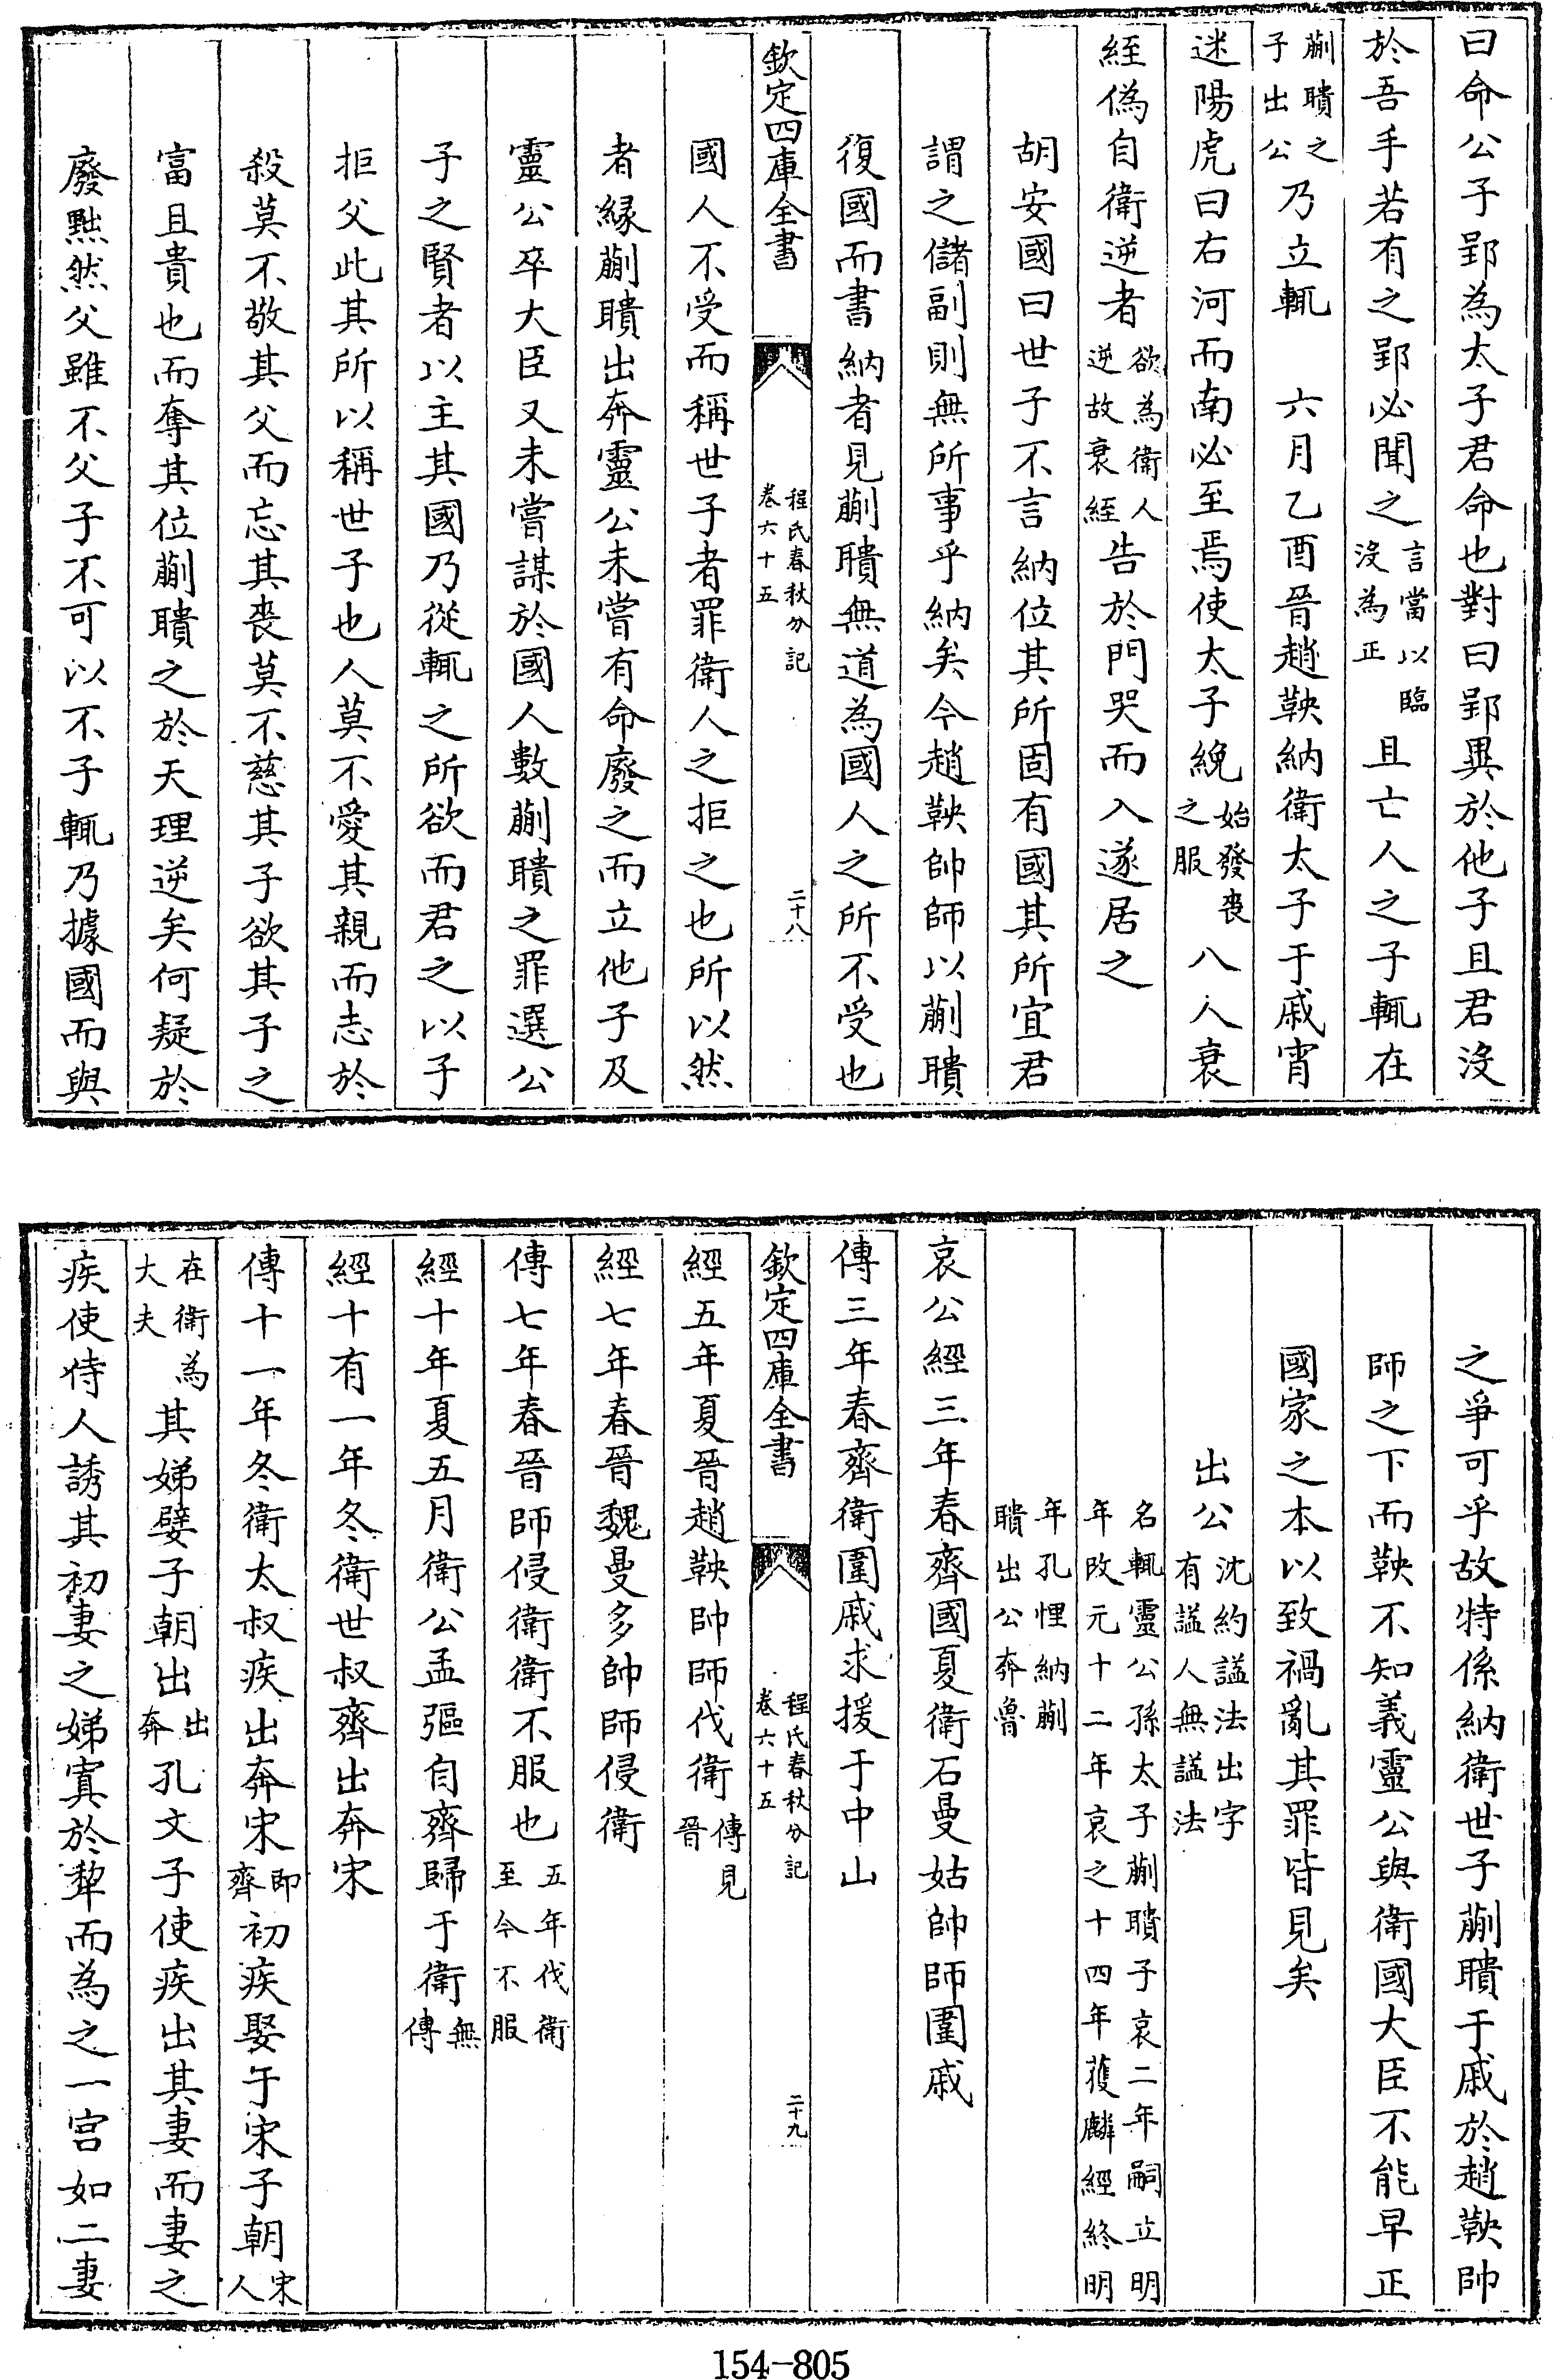 曰命公子郢為太子君命也對曰郢異於他子且君沒
於吾手若有之郢必聞之言當以臨沒為正且亡人之子輒在
蒯聵之子出公乃立輒　六月乙酉晉趙鞅納衛太子于戚宵
迷陽虎曰右河而南必至焉使太子絻始發喪之服八人衰
絰偽自衛逆者欲為衛人逆故衰絰告於門哭而入遂居之
胡安國曰世子不言納位其所固有國其所宜君
謂之儲副則無所事乎納矣今趙鞅帥師以蒯聵
復國而書納者見蒯聵無道為國人之所不受也
欽定四庫全書　程氏春秋分記卷六十五　二十八
國人不受而稱世子者罪衛人之拒之也所以然
者緣蒯聵出奔靈公未嘗有命廢之而立他子及
靈公卒大臣又未嘗謀於國人數蒯聵之罪選公
子之賢者以主其國乃從輒之所欲而君之以子
拒父此其所以稱世子也人莫不愛其親而志於
殺莫不敬其父而忘其喪莫不慈其子欲其子之
富且貴也而奪其位蒯聵之於天理逆矣何疑於
廢黜然父雖不父子不可以不子輒乃據國而與
之爭可乎故特係納衛世子蒯聵于戚於趙鞅帥
師之下而鞅不知義靈公與衛國大臣不能早正
國家之本以致禍亂其罪皆見矣
出公沈約諡法出字有諡人無諡法
名輒靈公孫太子蒯聵子哀二年嗣立明年改元十二年哀之十四年獲麟經終明
年孔悝納蒯聵出公奔魯
哀公經三年春齊國夏衛石曼姑帥師圍戚
傳三年春齊衛圍戚求援于中山
欽定四庫全書　程氏春秋分記卷六十五　二十九
經五年夏晉趙鞅帥師伐衛傳見晉
經七年春晉魏曼多帥師侵衛
傳七年春晉師侵衛衛不服也五年伐衛至今不服
經十年夏五月衛公孟彄自齊歸于衛無傳
經十有一年冬衛世叔齊出奔宋
傳十一年冬衛太叔疾出奔宋即齊初疾娶于宋子朝宋人
在衛為大夫其娣嬖子朝出出奔孔文子使疾出其妻而妻之
疾使侍人誘其初妻之娣寘於犂而為之一宮如二妻
154-805